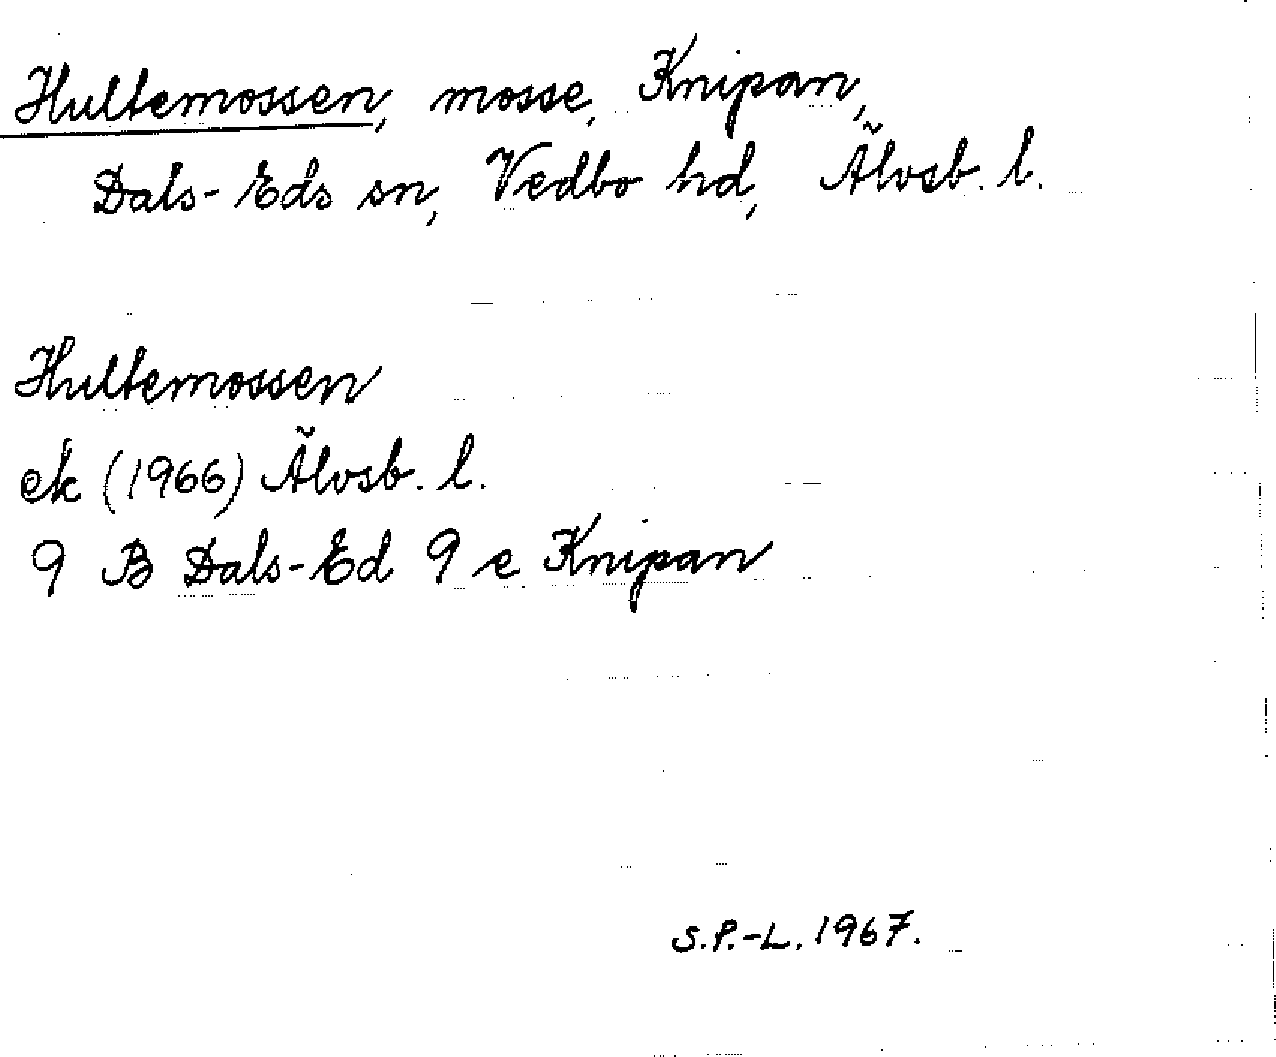 Hultemossen, mosse, Knipan,
Dals-Eds sn, Vedbo hd, Älvsb. l.
Hultemossen
ek (1966) Älvsb. l.
9 B Dals-Ed 9 e Knipan
S.P.-L. 1967.